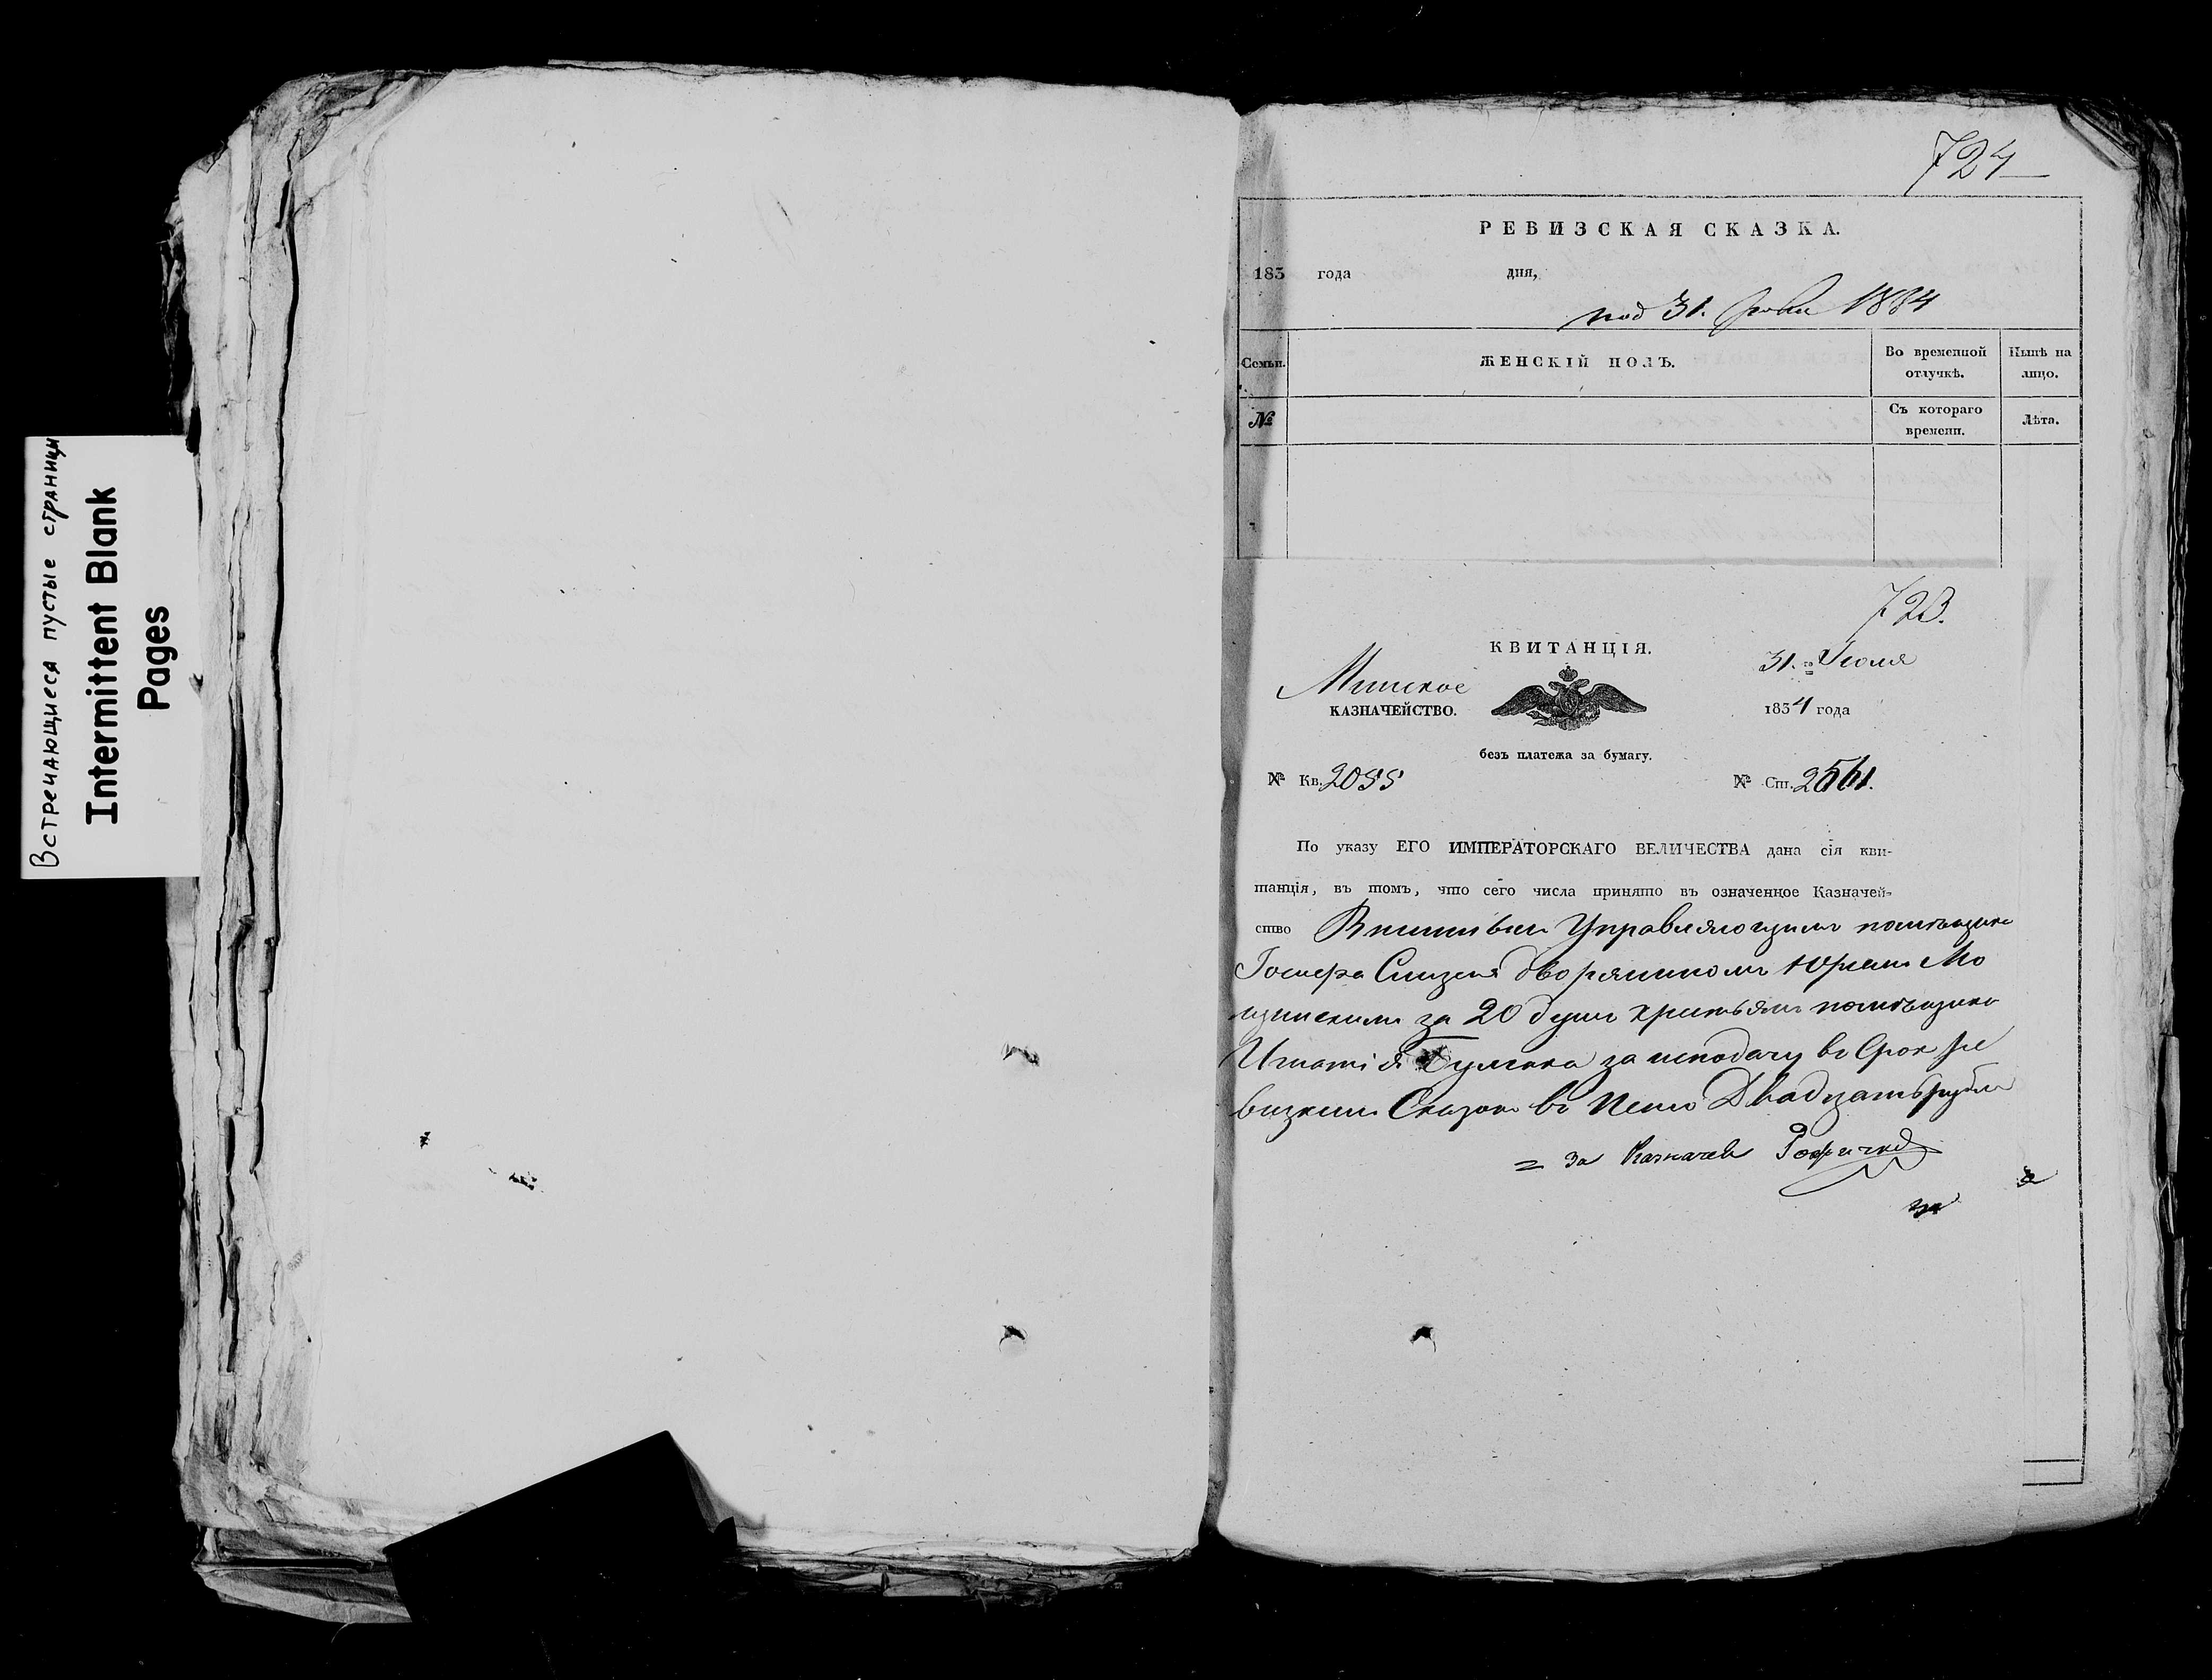 Встречающиеся пустые страницы
Intermittent Blank
Pages
724
РЕВИЗСКАЯ СКАЗКА.
183 года дня,
под 31. 1834
Семьи. ЖЕНСКІЙ ПОЛЪ. Во временной отлучкѣ. Нынѣ на лицо.
№ Съ котораго времени. Лѣта.
723.
КВИТАНЦІЯ.
31.го Июля
Минское
КАЗНАЧЕЙСТВО.
1834 года
безъ платежа за бумагу.
№ Кв. 2055 № Ст. 2561.
По указу ЕГО ИМПЕРАТОРСКАГО ВЕЛИЧЕСТВА дана сія кви-
танція, въ томъ, что сего числа принято въ означенное Казначей-
ство Управляющимъ помѣщика
дворяниномъ
за 20 душъ помѣщика
Игнатія Булгака за неподачу въ Срок ре
визкихъ Сказокъ Двадцать рубли
= За Казначея